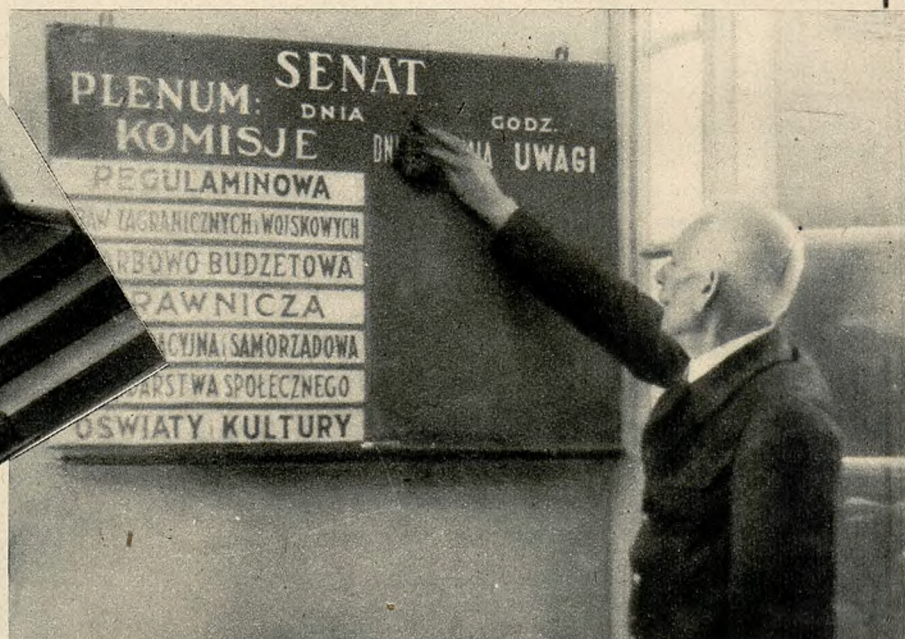 SENAT
PLENUM: DNIA GODZ.
KOMISJE UWAGI
REGULAMINOWA
ZAGRANICZNYCH i WOJSKOWYCH
RBOWO BUDŻETOWA
RAWNICZA
CYJNA i SAMORZĄDOWA
DARSTWA SPOŁECZNEGO
OŚWIATY i KULTURY